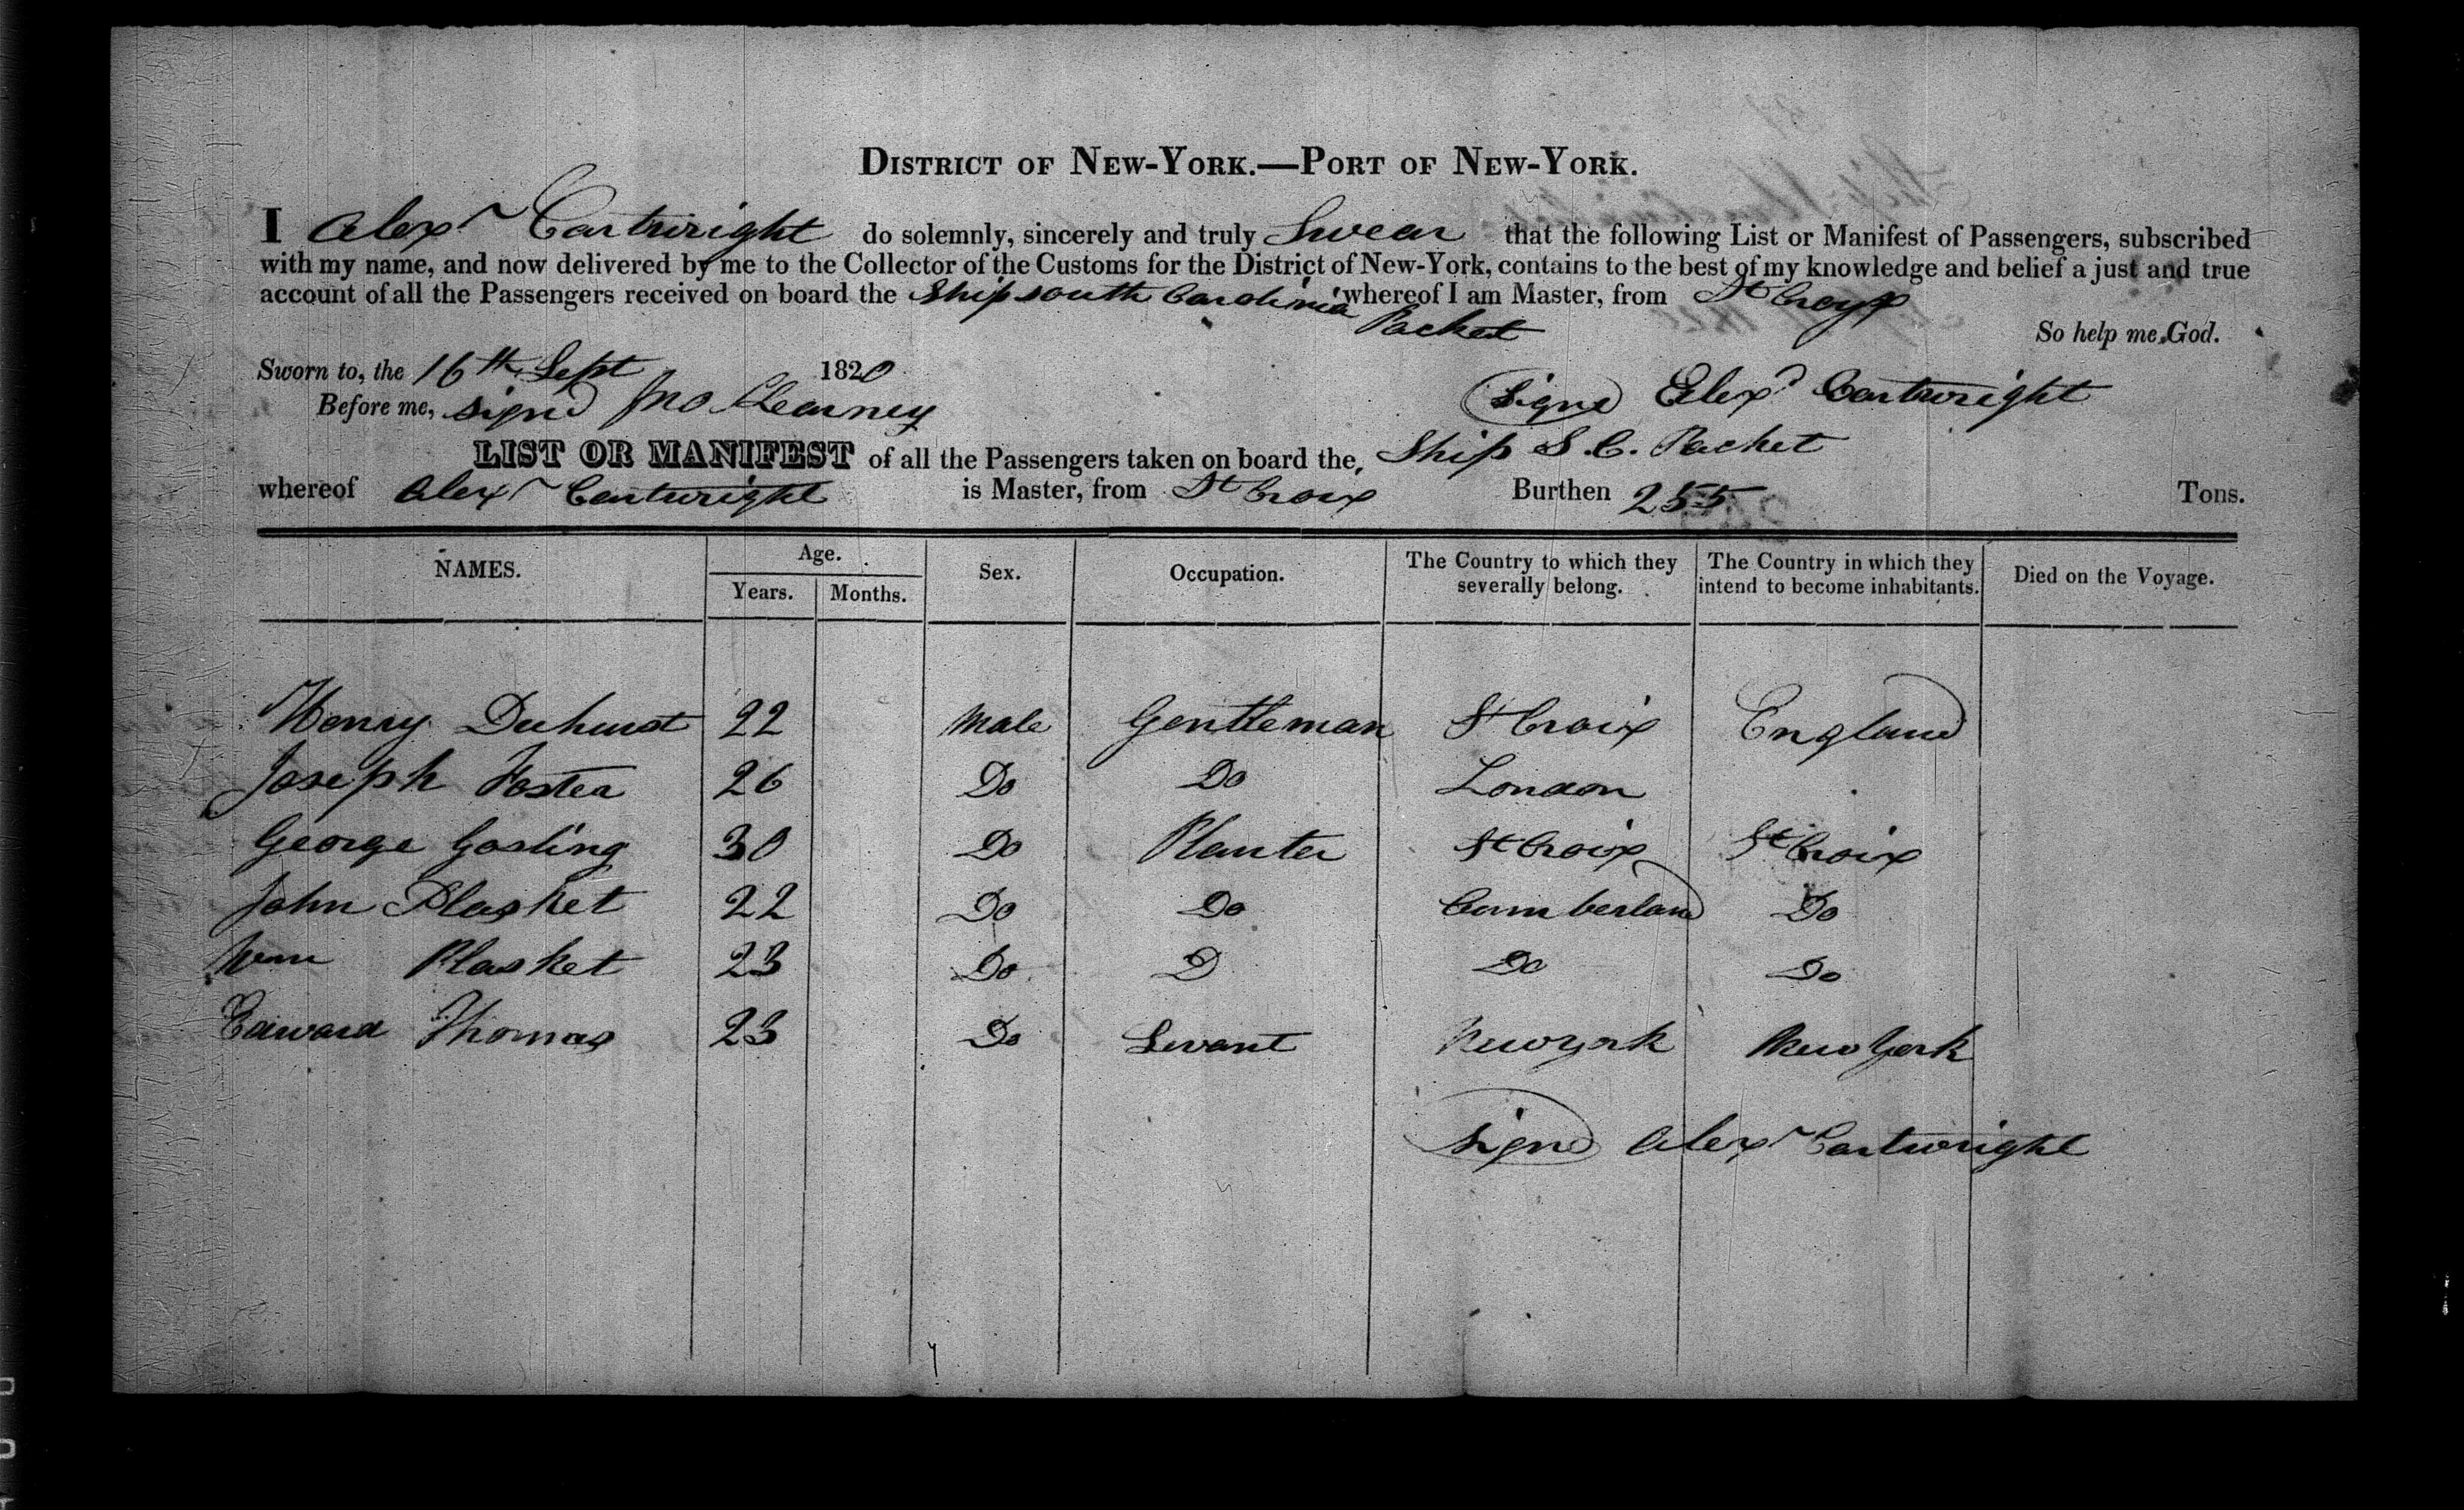 DISTRICT OF NEW-YORK.—PORT OF NEW-YORK.
I Alexr Cartwright do solemnly, sincerely and truly Swear that the following List or Manifest of Passengers, subscribed
with my name, and now delivered by me to the Collector of the Customs for the District of New-York, contains to the best of my knowledge and belief a just and true
account of all the Passengers received on board the Ship South Carolina Packet whereof I am Master, from St Croyx
So help me God.
Sworn to, the 16th Sept 1820
Before me, signd Jno
Signd Alexr Cartwright
LIST OR MANIFEST of all the Passengers taken on board the, Ship S.C. Packet
whereof Alexr Cartwright is Master, from St Croix Burthen 255 Tons.
NAMES. Age. Years. Months. Sex. Occupation. The Country to which they severally belong. The Country in which they intend to become inhabitants. Died on the Voyage.
Henry Duhurst 22 Male Gentleman St Croix England
Joseph Foster 26 Do Do London
George Gosling 30 Do Planter St Croix St Croix
John Plasket 22 Do Do Cumberland Do
Wm Plasket 23 Do D Do Do
Edward Thomas 23 Do Servant New York New York
Signd Alexr Cartwright